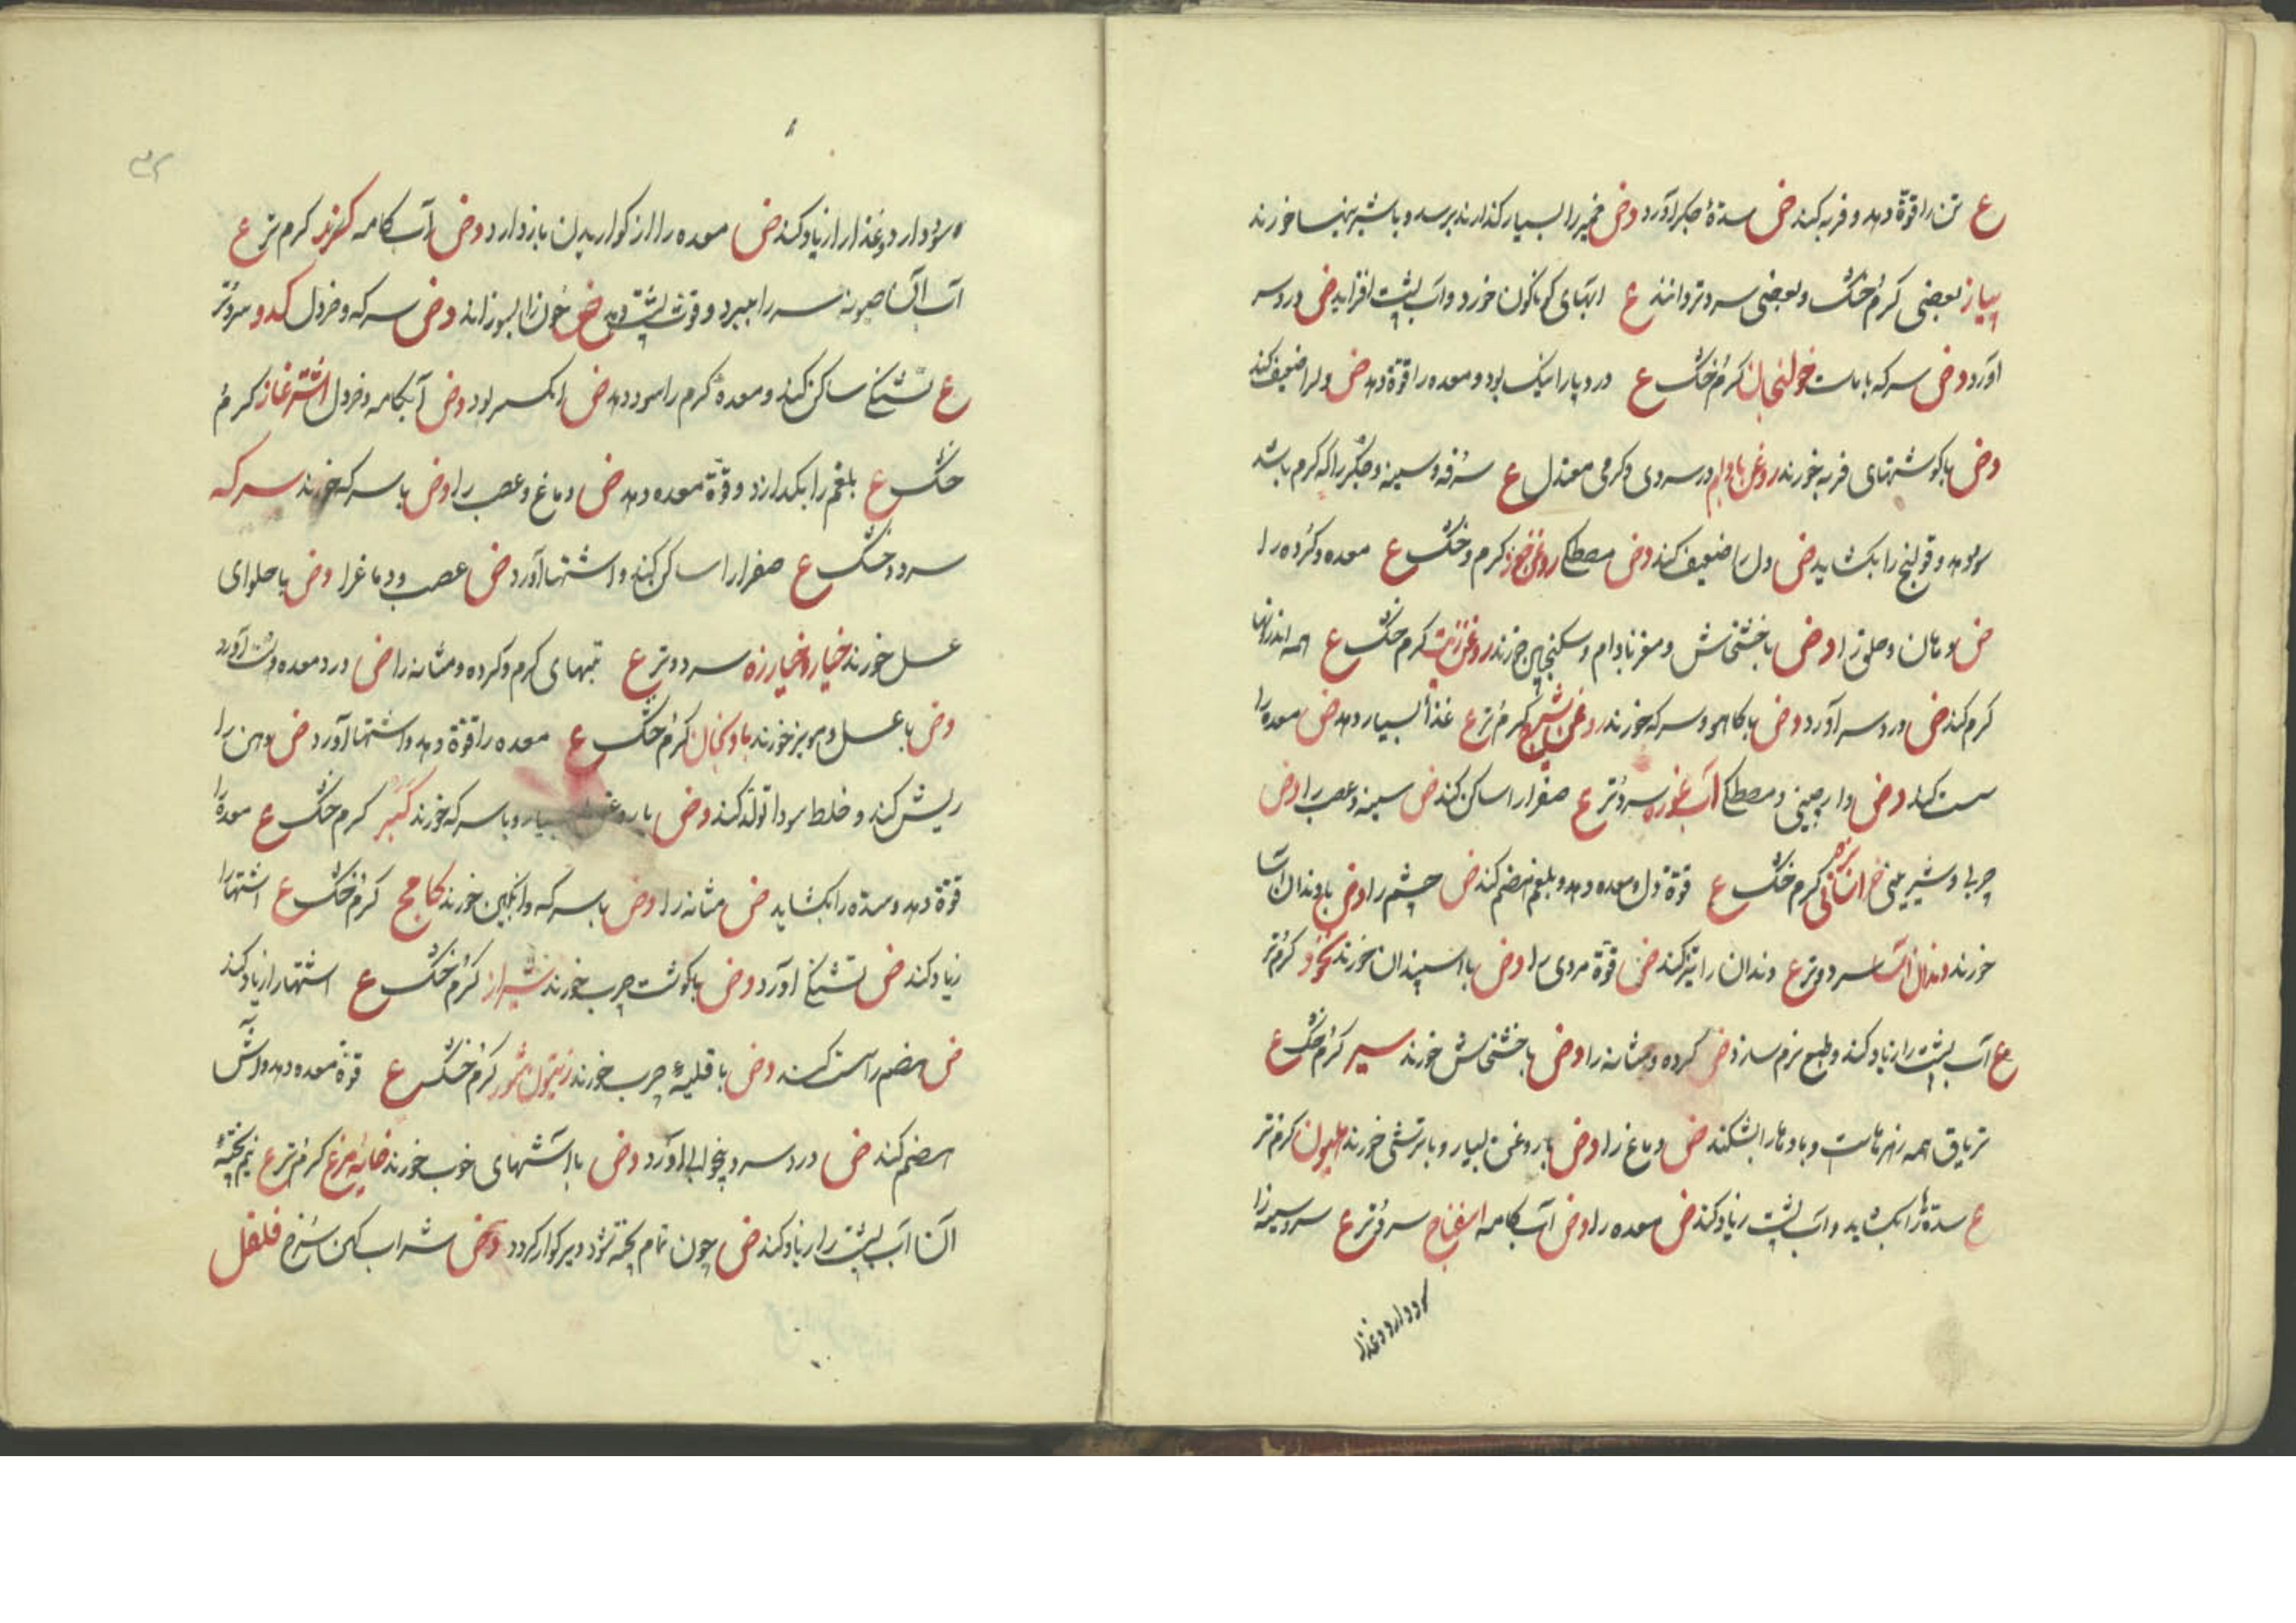 ع تن را قوّة دهد و فربه کند ض سدّهٔ جکر آورد وض خمیر را بسیار کذارند برسد و با شیرینیها خورند
پیاز بعضی کرم خشک و بعضی سرد و تر دانند ع آبهای کوناکون خورد و آب پشت افزاید ض درد سر
آورد وض سرکه با ماست خولنجان کرم خشک ع درد پا را نیک بود و معده را قوّة دهد ض دلرا ضعیف کند
وض با کوشتهای فربه خورند روغن بادام در سردی و کرمی معتدل ع سرفه و سینه و جکر را که کرم باشد
سود دهد و قولنج را بکشاید ض دل را ضعیف کند وض مصطکا روغن جوز کرم و خشک ع معده و کرده را
ض دهان و حلق را وض با خشخاش و مغز بادام و سکنجبین خورند روغن زیت کرم خشک ع همه اندرونها
کرم کند ض درد سر آورد وض با کاهو و سرکه خورند روغن کرم تر ع غذا بسیار دهد ض معده را
سست کند وض دارچینی و مصطکا آب غوره سرد تر ع صفرا را ساکن کند ض سینه و عصب را وض
چربی و شیرینی کرم خشک ع قوّة دل و معده دهد و بلغم هضم کند ض چشم را وض با دندان آسا
خورند دندان آسا سرد و تر ع دندان را تیز کند ض قوّة مردی را وض با اسپندان خورند نخود کرم تر
ع آب پشت را زیاد کند و طبع نرم سازد ض کرده و مثانه را وض با خشخاش خورند سیر کرم خشک ع
تریاق همه زهرهاست و بادها را بشکند ض دماغ را وض با روغن بسیار و با ترشی خورند هلیون کرم تر
ع سدّه را بکشاید و آب پشت زیاد کند ض معده را وض آب کامه اسفناج سرد تر ع سرد سینه را
سود دارد و غذا
سود دارد و غذا را زیاد کند ض معده را از کواریدن باز دارد وض آب کامه کرنب کرم تر ع
آب آن سر را ببرد و قوت پشت دهد ض خون را بسوزاند وض سرکه و خردل کدو سرد تر
ع تشنکی ساکن کند و معدهٔ کرم را سود دهد ض بود وض آبکامه و خردل اشترغاز کرم
خشک ع بلغم را بکدازد و قوّة معده دهد ض دماغ و عصب را وض با سرکه خورند سرکه
سرد و خشک ع صفرا را ساکن کند و اشتها آورد ض عصب و دماغ را وض با حلوای
عسل خورند خیار و خیارزه سرد و تر ع تبهای کرم و کرده و مثانه را ض درد معده و آورد
وض با عسل و مویز خورند بادنجان کرم خشک ع معده را قوّة دهد و اشتها آورد ض دهن را
ریش کند و خلط سودا تولّد کند وض با روغن بسیار و با سرکه خورند کبر کرم خشک ع معده را
قوّة دهد و سدّه را بکشاید ض مثانه را وض با سرکه و انکبین خورند کامخ کرم خشک ع اشتها را
زیاد کند ض تشنکی آورد وض با کوشت چرب خورند شیراز کرم خشک ع اشتها را زیاد کند
ض هضم را سست کند وض با قلیهٔ چرب خورند زیتون شور کرم خشک ع قوّة معده دهد و آتش
هضم کند ض درد سر و بیخوابی آورد وض با آشهای خوب خورند خایهٔ مرغ کرم تر ع نیم پختهٔ
آن آب پشت را زیاد کند ض چون تمام پخته شود دیر کوار کردد وض شراب کهن سرخ فلفل